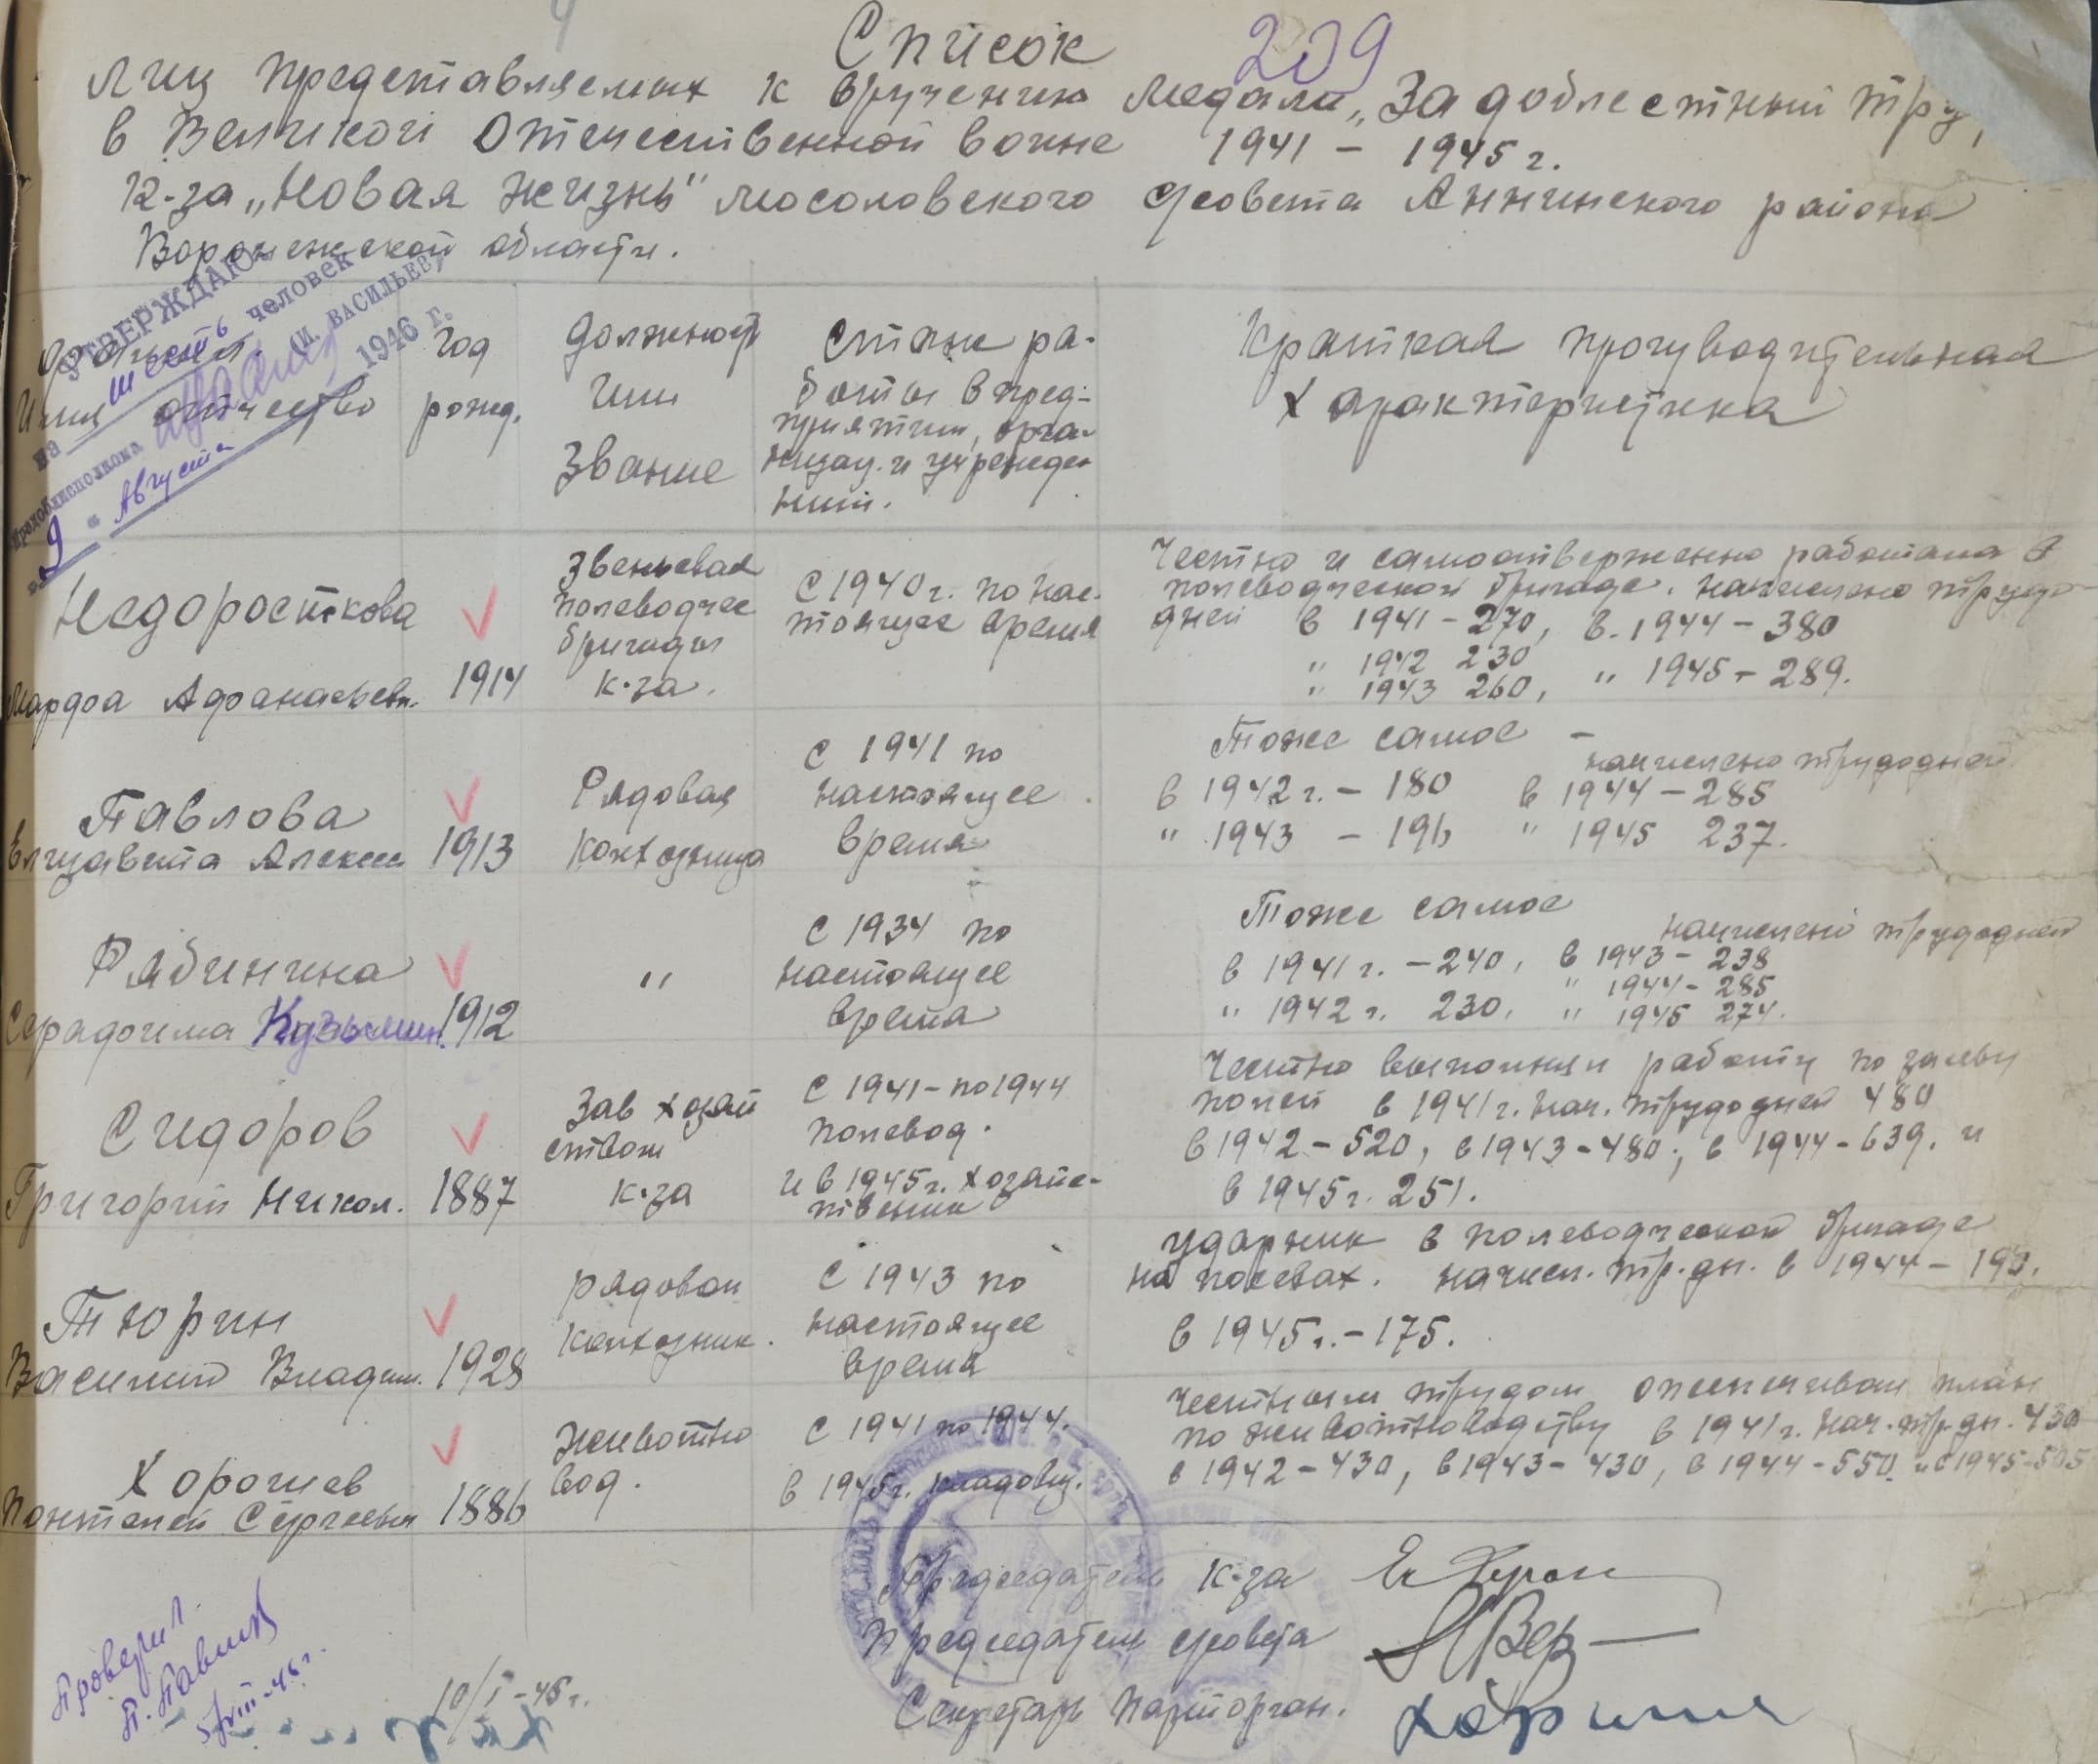 Список 209
лиц представляемых к вручению медали „За доблестный тру
в Великой Отечественной войне 1941 – 1945 г.
К-за „Новая жизнь" Мосоловского с/совета Аннинского района
Воронежской области.
УТВЕРЖДАЮ
на шесть человек
(И. ВАСИЛЬЕВ)
„9 " Августа 1946 г.
Фамил.
Имя отчество
Год
рожд.
Должность
или
Звание
Стаж ра-
боты в пред-
приятии, орга-
низац. и учрежде-
нии.
Краткая производительная
Характеристика
Недоросткова
Марфа Афанасьевн.
1914
Звеньевая
полеводчес
бригады
к-за.
С 1940 г. по нас-
тоящее время
Честно и самоотверженно работала в
полеводческой бригаде. начислено трудо-
дней в 1941 – 270, в. 1944 – 380
" 1942 230
" 1943 260, " 1945 – 289.
Павлова
Елизавета Алексее
1913
Рядовая
колхозница
С 1941 по
настоящее
время
Тоже самое –
начислено трудодней
в 1942 г. – 180 в 1944 – 285
" 1943 – 196 " 1945 237.
Рябинина
Серафима Кузьмин.
1912
"
С 1934 по
настоящее
время
Тоже самое
начислено трудодней
в 1941 г. – 240, в 1943 – 238
" 1944 - 285
" 1942 г. 230. " 1945 274.
Сидоров
Григорий Никол.
1887
Зав хозяй
ством
к-за
С 1941 – по 1944
полевод.
и в 1945 г. хозяйс-
твенник
Честно выполнял работу по засеву
полей в 1941 г. нач. трудодней 480
в 1942 – 520, в 1943 – 480; в 1944 – 639. и
в 1945 г. 251.
Тюрин
Василий Владим.
1928
рядовой
колхозник.
С 1943 по
настоящее
время
ударник в полеводческой бригаде
на посевах. начисл. тр. дн. в 1944 – 190.
в 1945 г. – 175.
Хорошев
Понтелей Сергеевич
1886
Животно
вод.
С 1941 по 1944.
в 1945 г. кладовщ.
Честным трудом обеспечивал план
по животноводству в 1941 г. нач. тр. дн. 430
в 1942 – 430, в 1943 – 430, в 1944 – 550. и в 1945 – 505
Председатель к-за
Председатель с/совета
Секретарь парторган.
Проверил
10/I – 46 г.